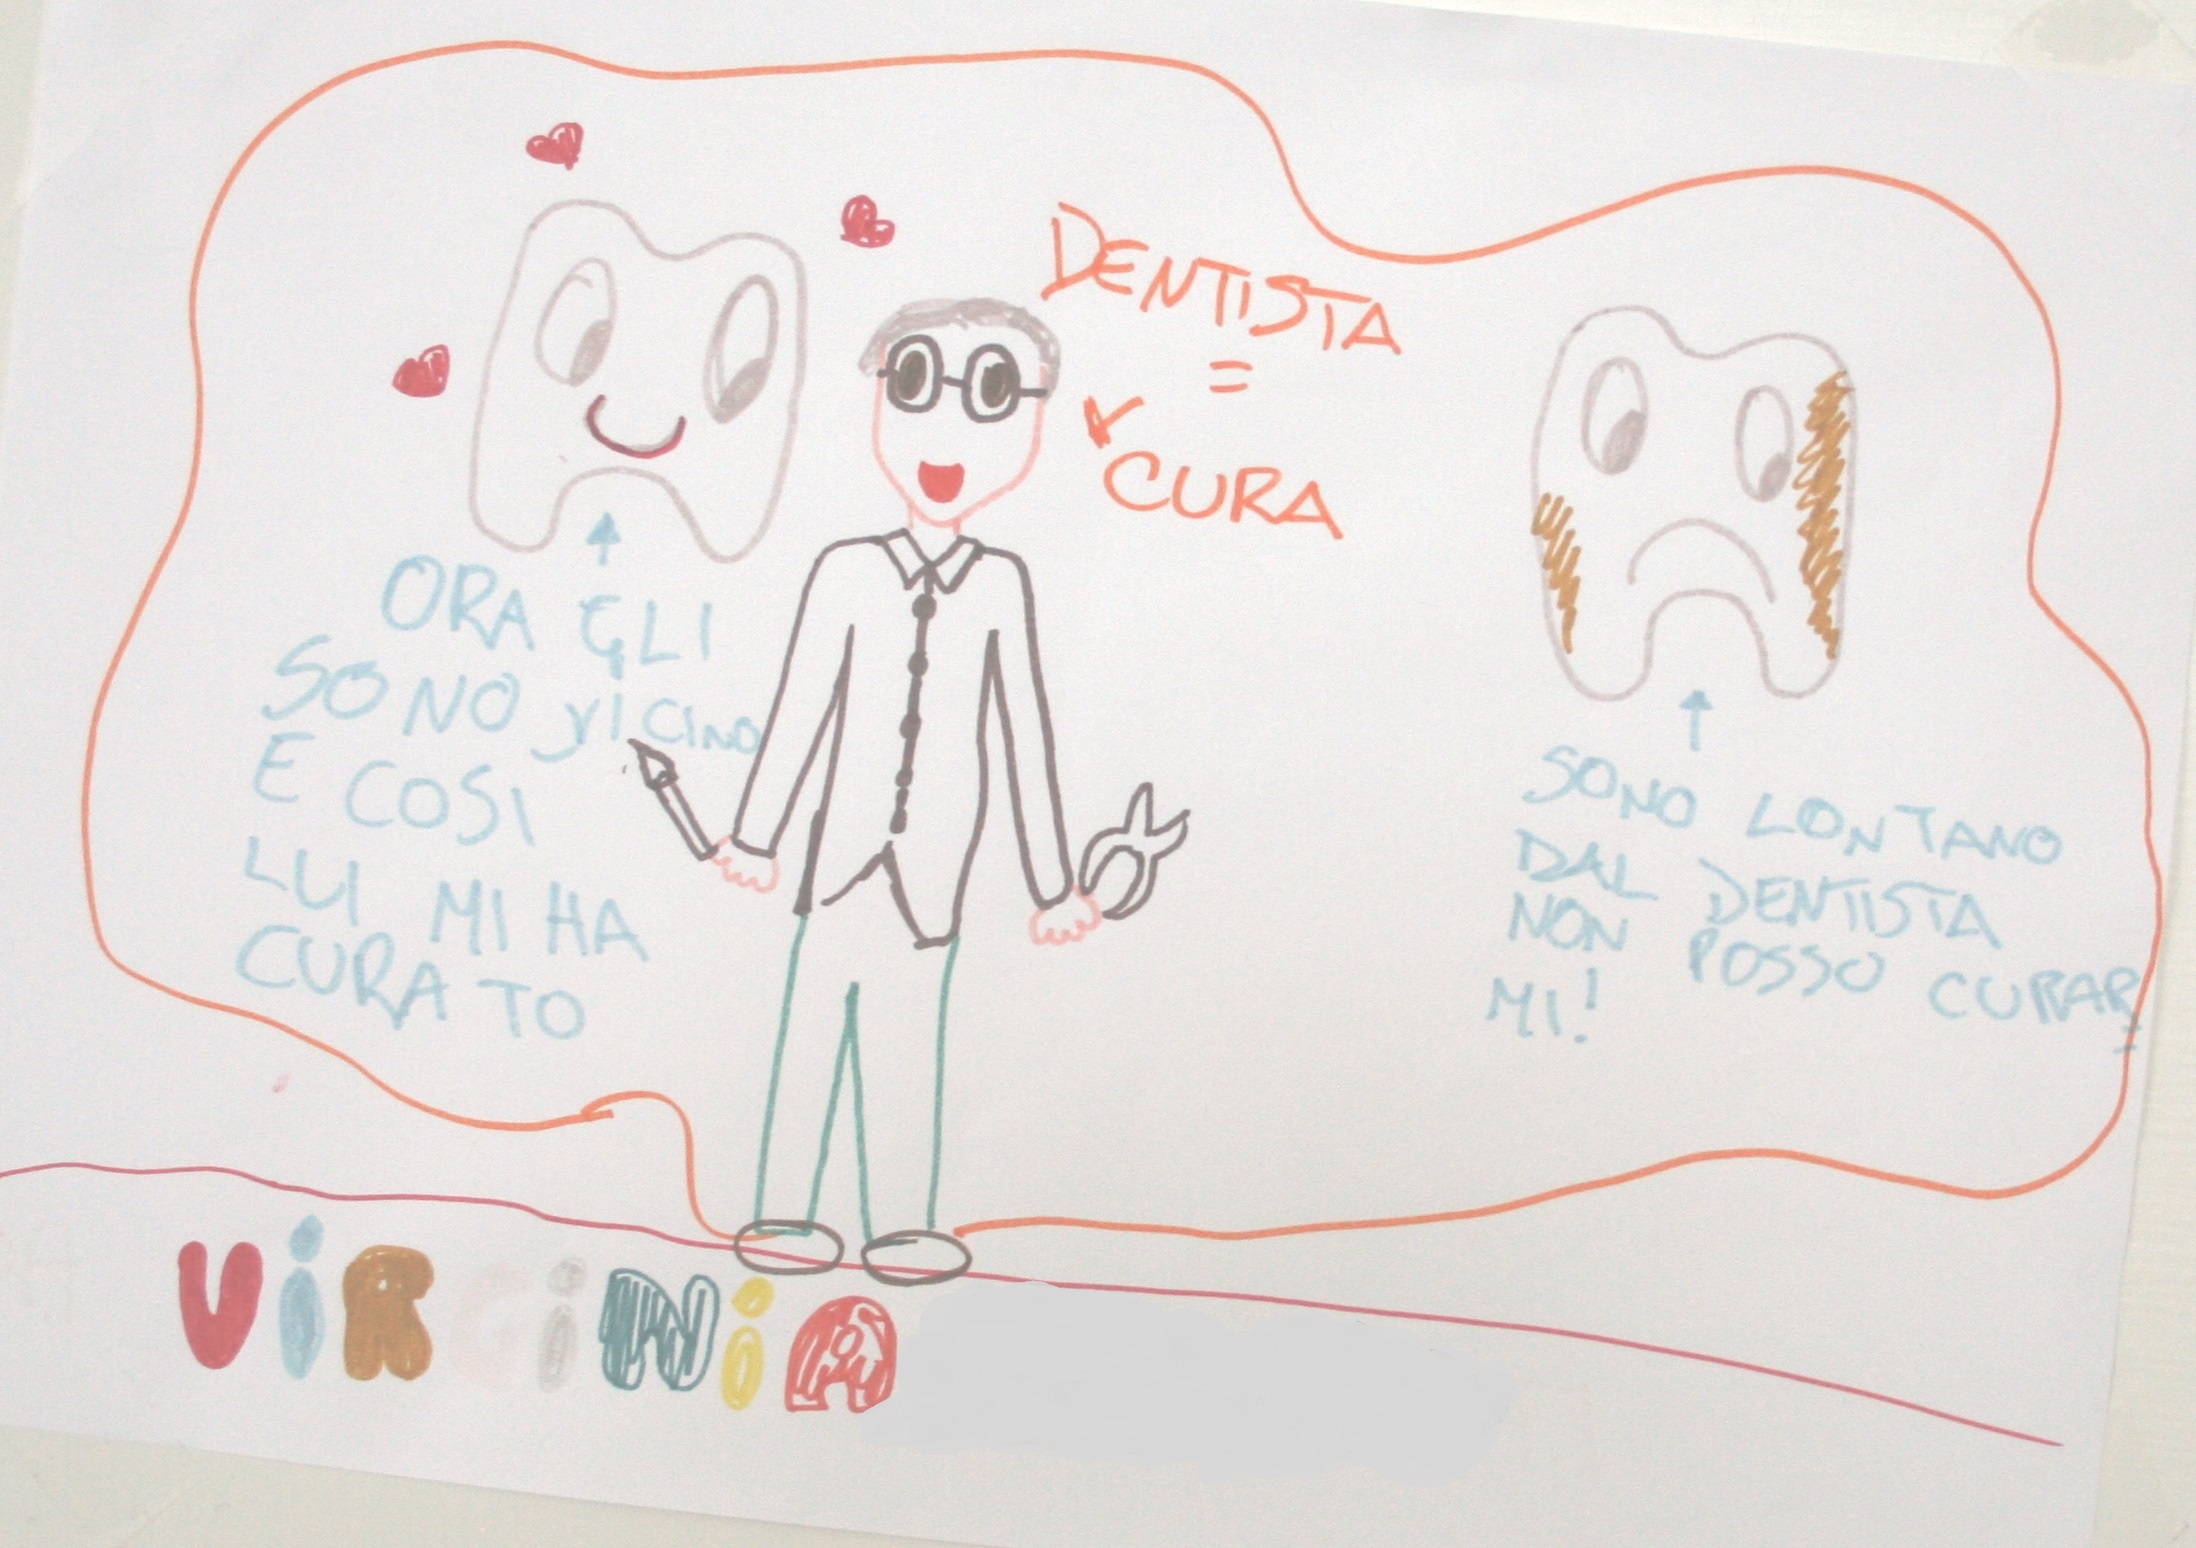 DENTISTA
=
CURA
ORA GLI
SONO VICINO
E COSI
LUI MI HA
CURATO
SONO LONTANO
DAL DENTISTA
NON POSSO CURAR=
MI!
ViRGiNiA